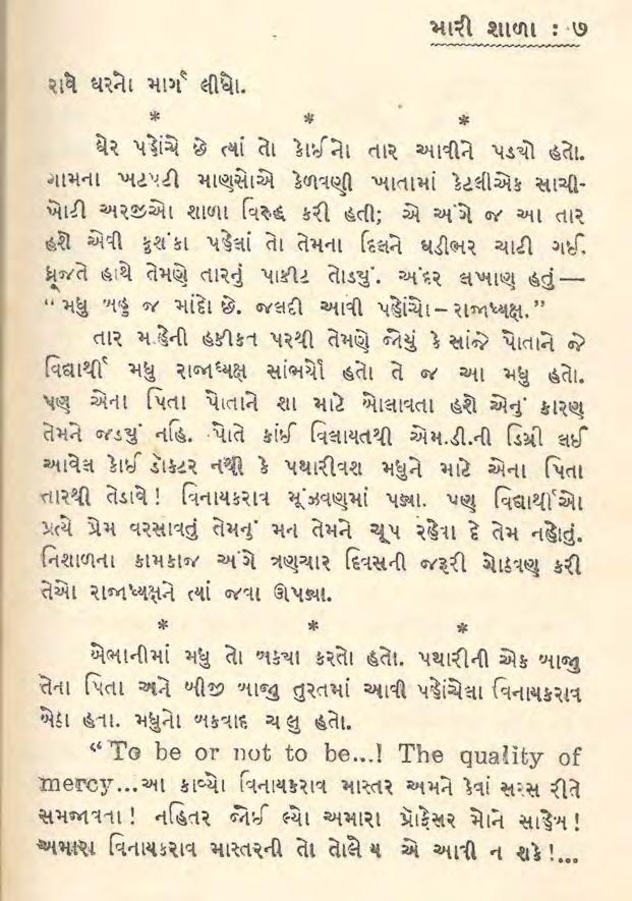 મારી શાળા : ૭
રાવે ઘરનો માર્ગ લીધો.
* * *
ઘેર પહોંચે છે ત્યાં તો કોઈનો તાર આવીને પડ્યો હતો.
ગામના ખટપટી માણસોએ કેળવણી ખાતામાં કેટલીએક સાચી-
ખોટી અરજીઓ શાળા વિરુદ્ધ કરી હતી; એ અંગે જ આ તાર
હશે એવી કુશંકા પહેલાં તો તેમના દિલને ઘડીભર ચાટી ગઈ.
ધ્રૂજતે હાથે તેમણે તારનું પાકીટ તોડ્યું. અંદર લખાણ હતું —
“મધુ બહુ જ માંદો છે. જલદી આવી પહોંચો – રાજાધ્યક્ષ.”
તાર માંહેની હકીકત પરથી તેમણે જોયું કે સાંજે પોતાને જે
વિદ્યાર્થી મધુ રાજાધ્યક્ષ સાંભર્યો હતો તે જ આ મધુ હતો.
પણ એના પિતા પોતાને શા માટે બોલાવતા હશે એનું કારણ
તેમને જડ્યું નહિ. પોતે કાંઈ વિલાયતથી એમ.ડી.ની ડિગ્રી લઈ
આવેલ કોઈ ડૉક્ટર નથી કે પથારીવશ મધુને માટે એના પિતા
તારથી તેડાવે! વિનાયકરાવ મૂંઝવણમાં પડ્યા. પણ વિદ્યાર્થીઓ
પ્રત્યે પ્રેમ વરસાવતું તેમનું મન તેમને ચૂપ રહેવા દે તેમ નહોતું.
નિશાળના કામકાજ અંગે ત્રણચાર દિવસની જરૂરી ગોઠવણ કરી
તેઓ રાજાધ્યક્ષને ત્યાં જવા ઊપડ્યા.
* * *
બેભાનીમાં મધુ તો બક્યા કરતો હતો. પથારીની એક બાજુ
તેના પિતા અને બીજી બાજુ તુરતમાં આવી પહોંચેલા વિનાયકરાવ
બેઠા હતા. મધુનો બકવાદ ચાલુ હતો.
“To be or not to be...! The quality of
mercy...આ કાવ્યો વિનાયકરાવ માસ્તર અમને કેવાં સરસ રીતે
સમજાવતા! નહિતર જોઈ લ્યો અમારા પ્રૉફેસર મોને સાહેબ!
અમારા વિનાયકરાવ માસ્તરની તો તોલે ય એ આવી ન શકે!...